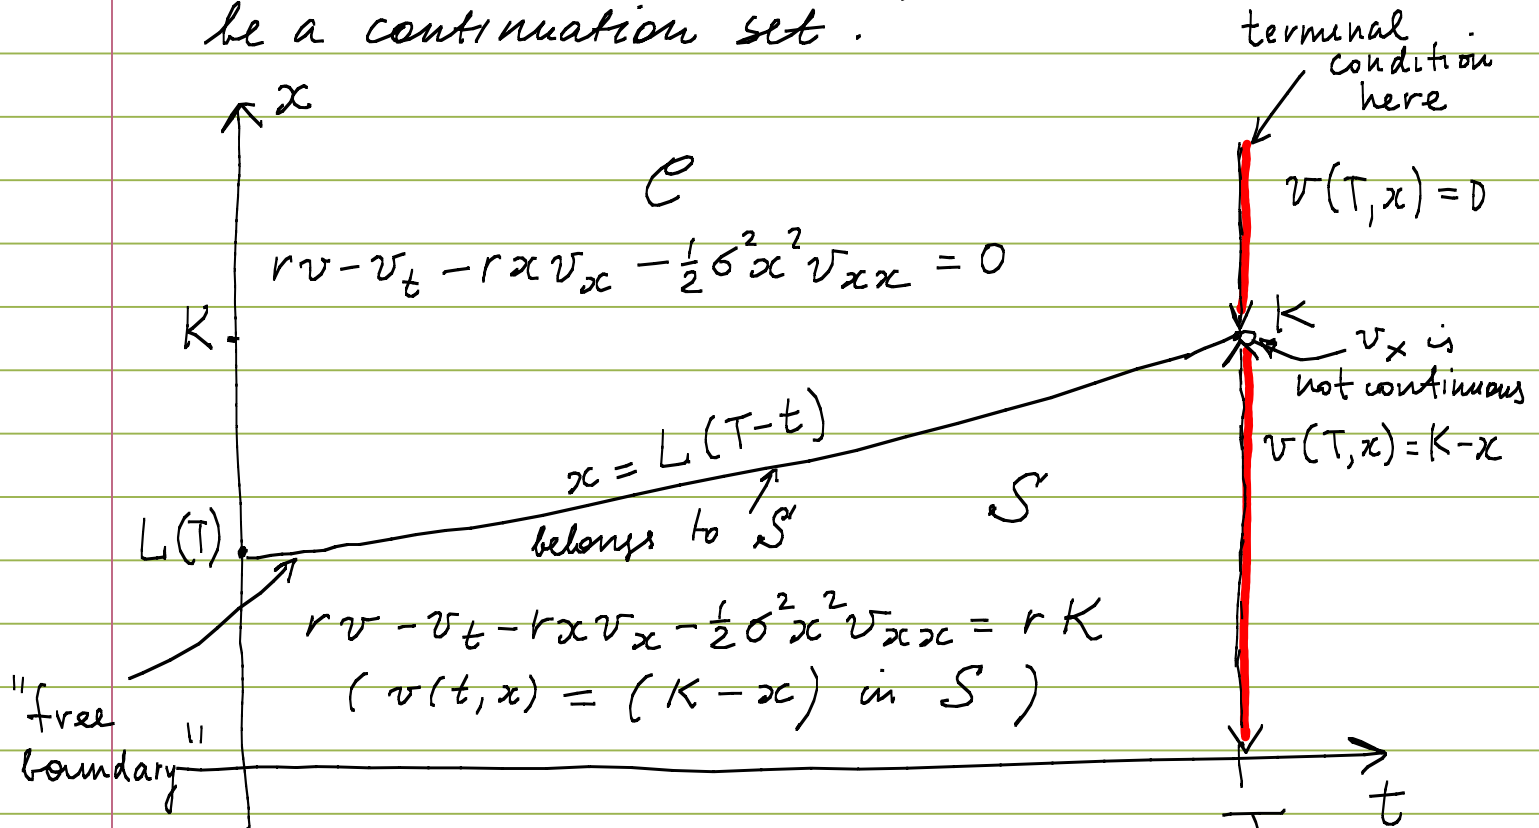 be a continuation set .
terminal
condition
here
x
C
v(T,x) = 0
rv - v_t - rxv_x - 1/2 σ²x²v_xx = 0
K
K
v_x is
not continuous
v(T,x) = K-x
x = L(T-t)
S
L(T)
belongs to S
rv - v_t - rxv_x - 1/2 σ²x²v_xx = rK
( v(t,x) = (K-x) in S )
"free
boundary"
t
T